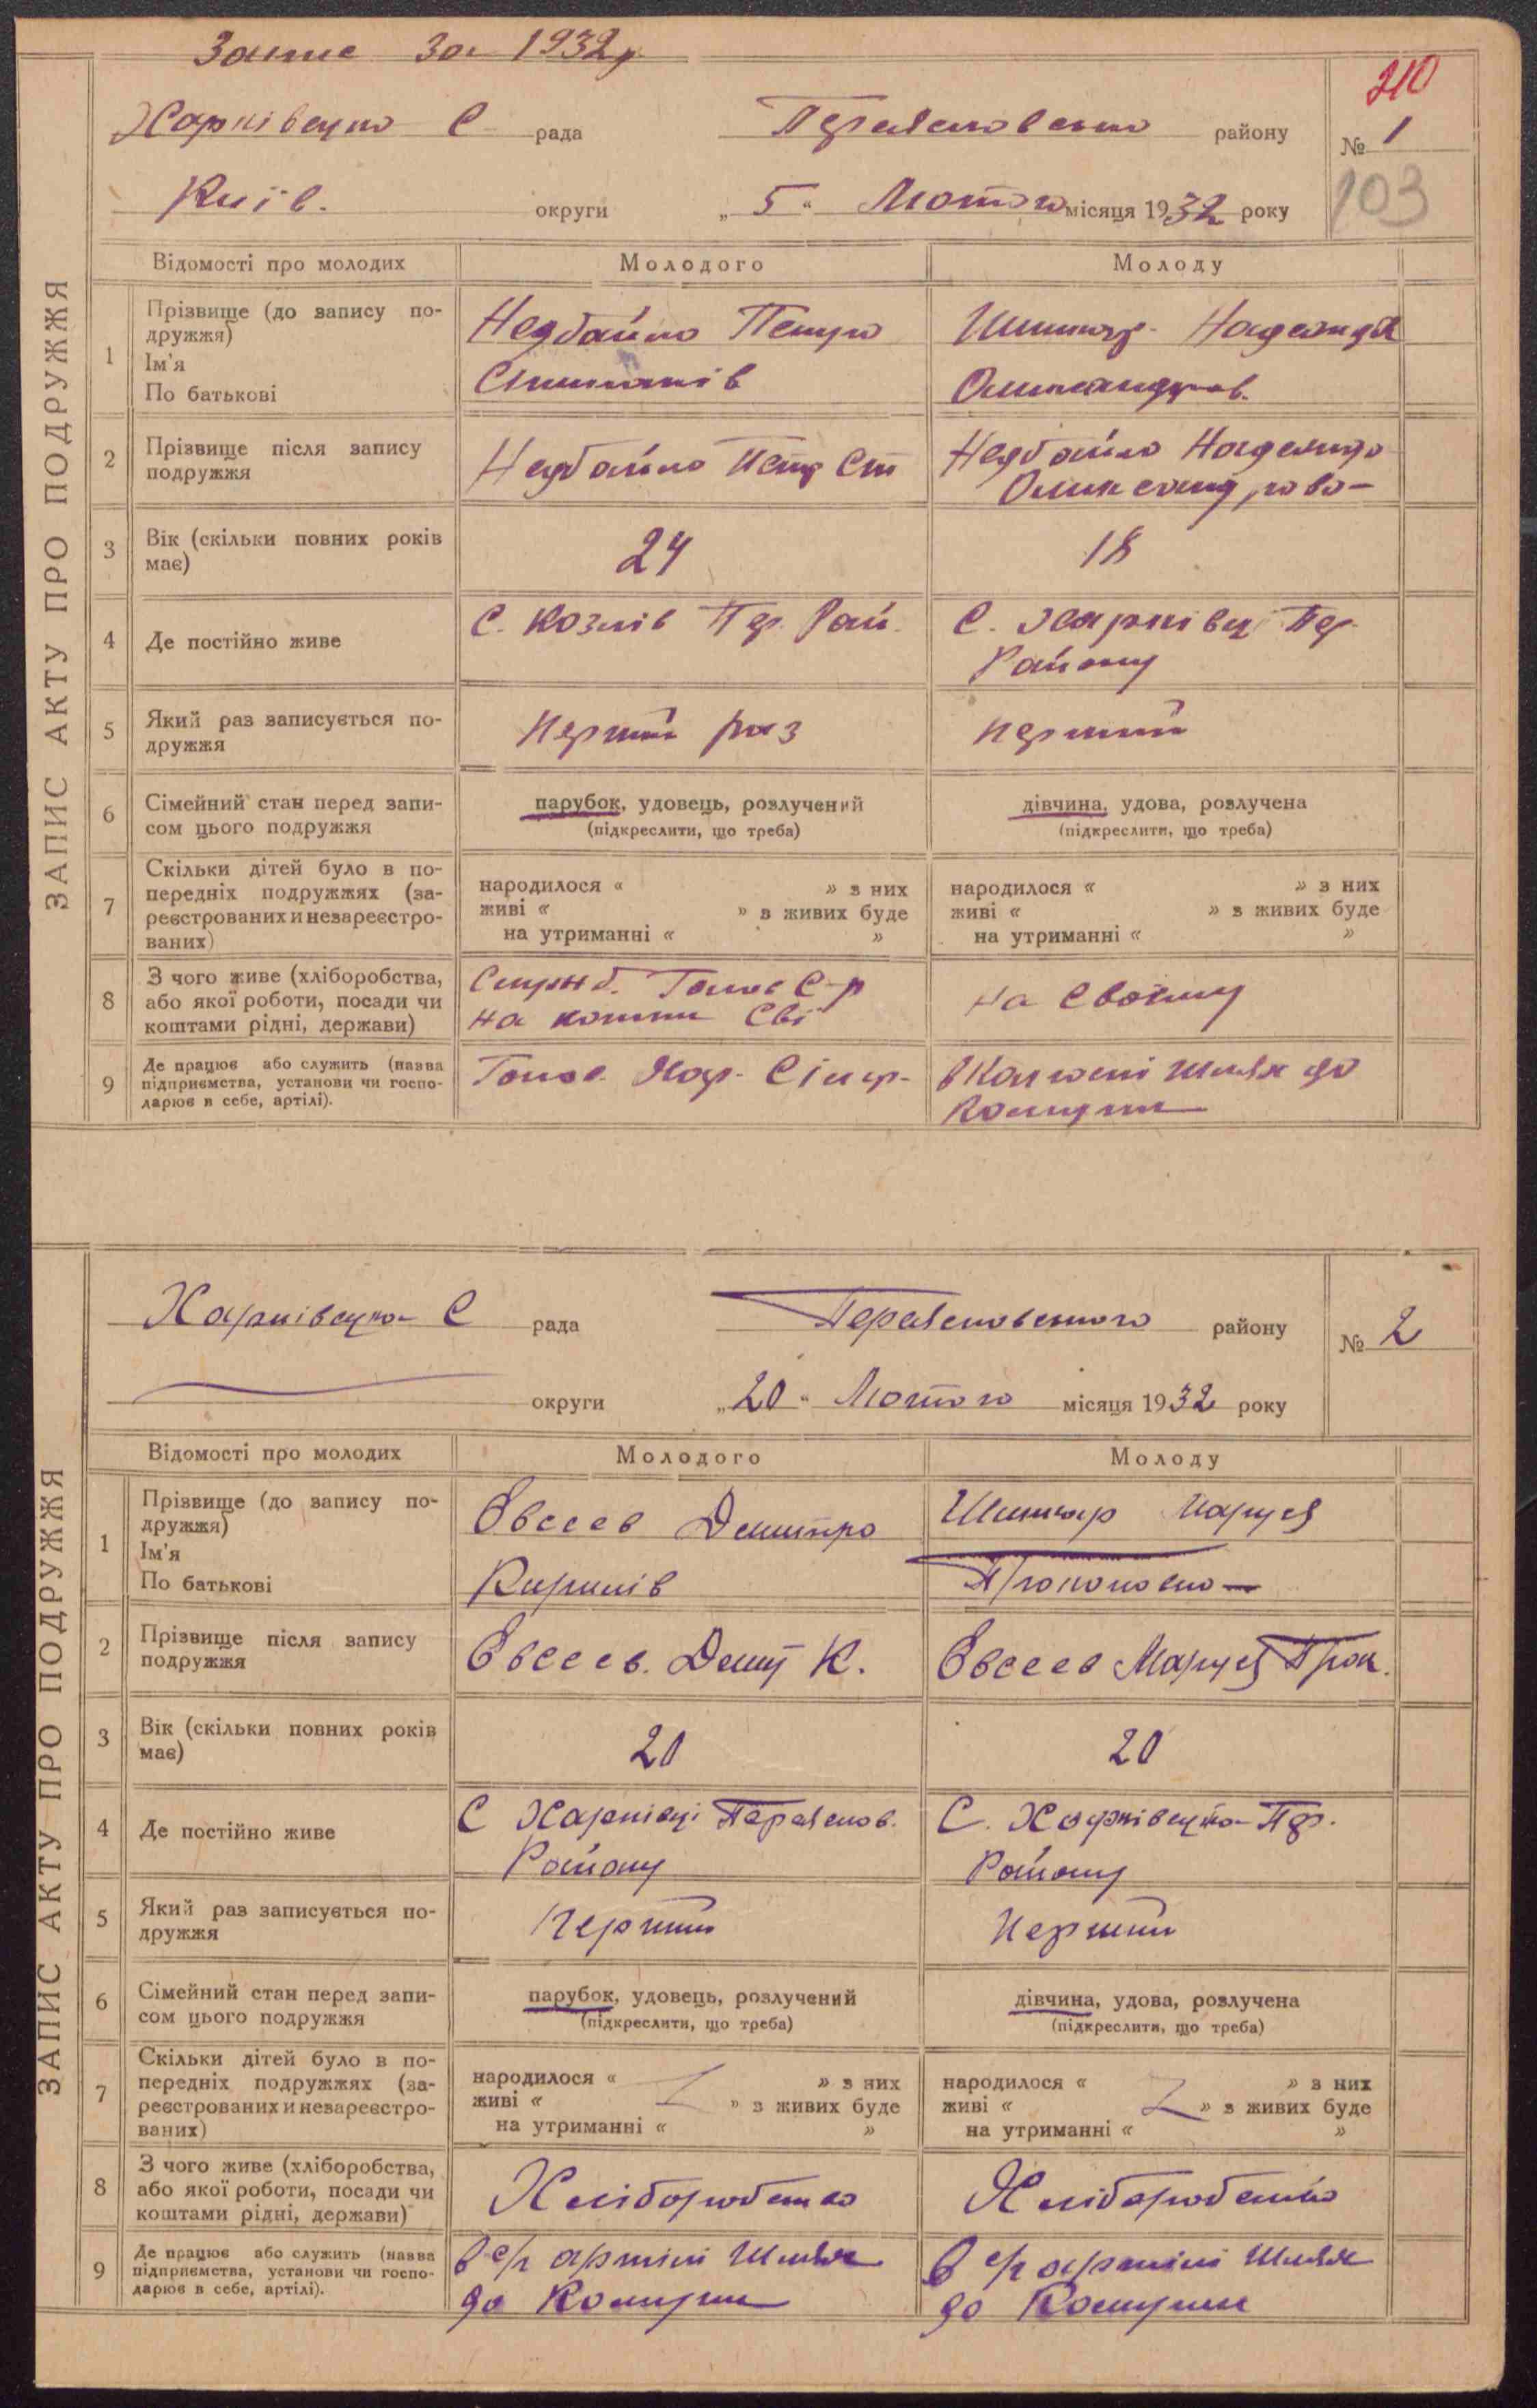 за 1932р.
210
Харківецька С рада Переяславського району № 1
Київ. округи „5“ Лютого місяця 1932 року
103
ЗАПИС АКТУ ПРО ПОДРУЖЖЯ
Відомості про молодих Молодого Молоду
1 Прізвище (до запису по-
дружжя)
Ім'я
По батькові
Недбайло Петро
Степанів
Шинкар Надежда
Олександров.
2 Прізвище після запису
подружжя
Недбайло Петр Ст
Недбайло Надежда
Олександрова
3 Вік (скільки повних років
має)
24
18
4 Де постійно живе
С. Козлів Пер. Рай.
С. Харківці Пер.
Району
5 Який раз записується по-
дружжя
Перший раз
перший
6 Сімейний стан перед запи-
сом цього подружжя
парубок, удовець, розлучений
(підкреслити, що треба)
дівчина, удова, розлучена
(підкреслити, що треба)
7 Скільки дітей було в по-
передніх подружжях (за-
реєстрованих и незареєстро-
ваних)
народилося « » з них
живі « » з живих буде
на утриманні « »
народилося « » з них
живі « » з живих буде
на утриманні « »
8 З чого живе (хліборобства,
або якої роботи, посади чи
коштами рідні, держави)
Служб. Голов С-р
на кошти Сві
на Своєму
9 Де працює або служить (назва
підприємства, установи чи госпо-
дарює в себе, артілі).
Голов. Хар. Сільр.
в Колгоспі Шлях до
Комуни
ЗАПИС АКТУ ПРО ПОДРУЖЖЯ
Харківецька С рада Переяславського району № 2
округи „20“ Лютого місяця 1932 року
Відомості про молодих Молодого Молоду
1 Прізвище (до запису по-
дружжя)
Ім'я
По батькові
Євсеев Дмитро
Кирилів
Шинкар Маруся
Прокоповна
2 Прізвище після запису
подружжя
Євсеев. Дмит К.
Євсеев Маруся Прок.
3 Вік (скільки повних років
має)
20
20
4 Де постійно живе
С Харківці Переяслов.
Району
С. Харківецька Пер.
Району
5 Який раз записується по-
дружжя
Перший
Перший
6 Сімейний стан перед запи-
сом цього подружжя
парубок, удовець, розлучений
(підкреслити, що треба)
дівчина, удова, розлучена
(підкреслити, що треба)
7 Скільки дітей було в по-
передніх подружжях (за-
реєстрованих и незареєстро-
ваних)
народилося « » з них
живі « » з живих буде
на утриманні « »
народилося « » з них
живі « » з живих буде
на утриманні « »
8 З чого живе (хліборобства,
або якої роботи, посади чи
коштами рідні, держави)
Хліборобство
Хліборобство
9 Де працює або служить (назва
підприємства, установи чи госпо-
дарює в себе, артілі).
в с/г артілі Шлях
до Комуни
в с/г артілі Шлях
до Комуни